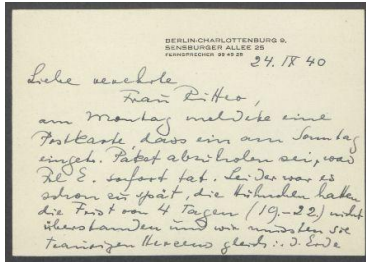 BERLIN-CHARLOTTENBURG 9,
SENSBURGER ALLEE 25
FERNSPRECHER 99 49 25
24. IX 40
Liebe verehrte
Frau Ritter,
am Montag meldete eine
Postkarte, dass ein am Sonntag
eingetr. Paket abzuholen sei, was
Frl E. sofort tat. Leider war es
schon zu spät, die Hühnchen hatten
die Frist von 4 Tagen (19.-22.) nicht
überstanden und wir mussten sie
traurigen Herzens gleich i. d. Erde